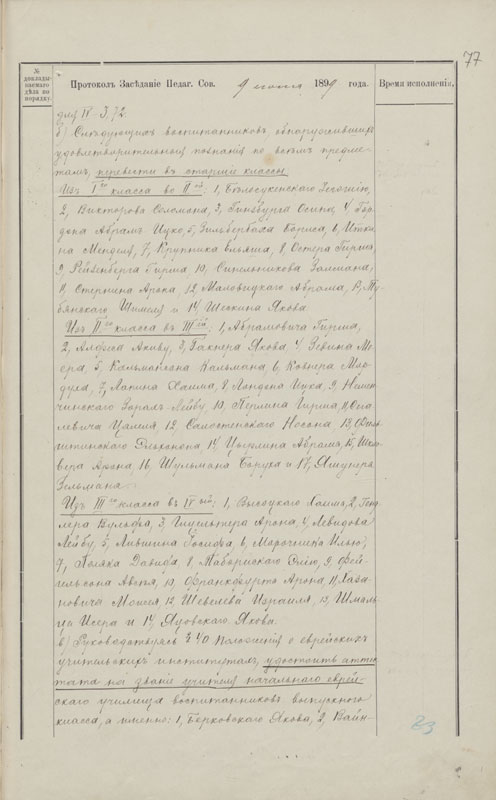 77
№ докладываемаго дѣла по порядку.
Протоколъ Засѣданіе Педаг. Сов. 9 іюня 1899 года.
Время исполненія.
для IV - 3,72.
б) Слѣдующихъ воспитанниковъ, обнаружившихъ
удовлетворительныя познанія по всѣмъ предме-
тамъ, перевести въ старшіе классы:
Изъ I го класса во II ой: 1, Бѣлосукенскаго
2, Викторова Соломона, 3, Гинзбурга Осипа, 4, Гор-
дона Абрамъ Ицко, 5, Зильбербаха Бориса, 6, Ицко-
Менделя, 7, Крупника Ельяша, 8, Остера Гирша,
9, Рейзенберга Гирша, 10, Синельникова Залмана,
11, Стернина Арона, 12, Маловицкаго Абрама, 13, Ту-
бянскаго Шимеля и 14, Шескина Якова.
Изъ II го класса въ III ій: 1, Абрамовича Гирша,
2, Акиву, 3, Бахнера Якова, 4, Зевина Ме-
ера, 5, Кальмансона Кальмана, 6, Ковнера Мор-
духа, 7, Лапина Хаима, 8, Лондона Ицка, 9, Немен-
чинскаго Зорахъ Лейбу, 10, Перлина Гирша, 11,
Цалеля 12, Салостенскаго Носона, 13,
Эльхонона, 14, Цырлина Абрама, 15,
вера Арона, 16, Шульмана Боруха и 17,
Зельмана.
Изъ III го класса въ IV ый: 1, Высоцкаго Хаимъ, 2,
лера Вульфа, 3, Арона, 4, Левидова
Лейбу, 5, Лившина Іосифа, 6, Марочника Илью,
7, Поляка Давида, 8, Табарискаго Элію, 9, Фей-
гельсона Авеля, 10, Франкфурта Арона, 11, Хаза-
новича Моисея, 12, Шевелева Израиля, 13, Шмаль-
ца Исера и 14, Язовскаго Якова.
в) Руководствуясь § 40 Положенія о еврейскихъ
учительскихъ институтахъ, удостоить атте-
стата на званіе учителя начальнаго еврей-
скаго училища воспитанниковъ выпускного
класса, а именно: 1, Берковскаго Якова, 2, Вайн-
83